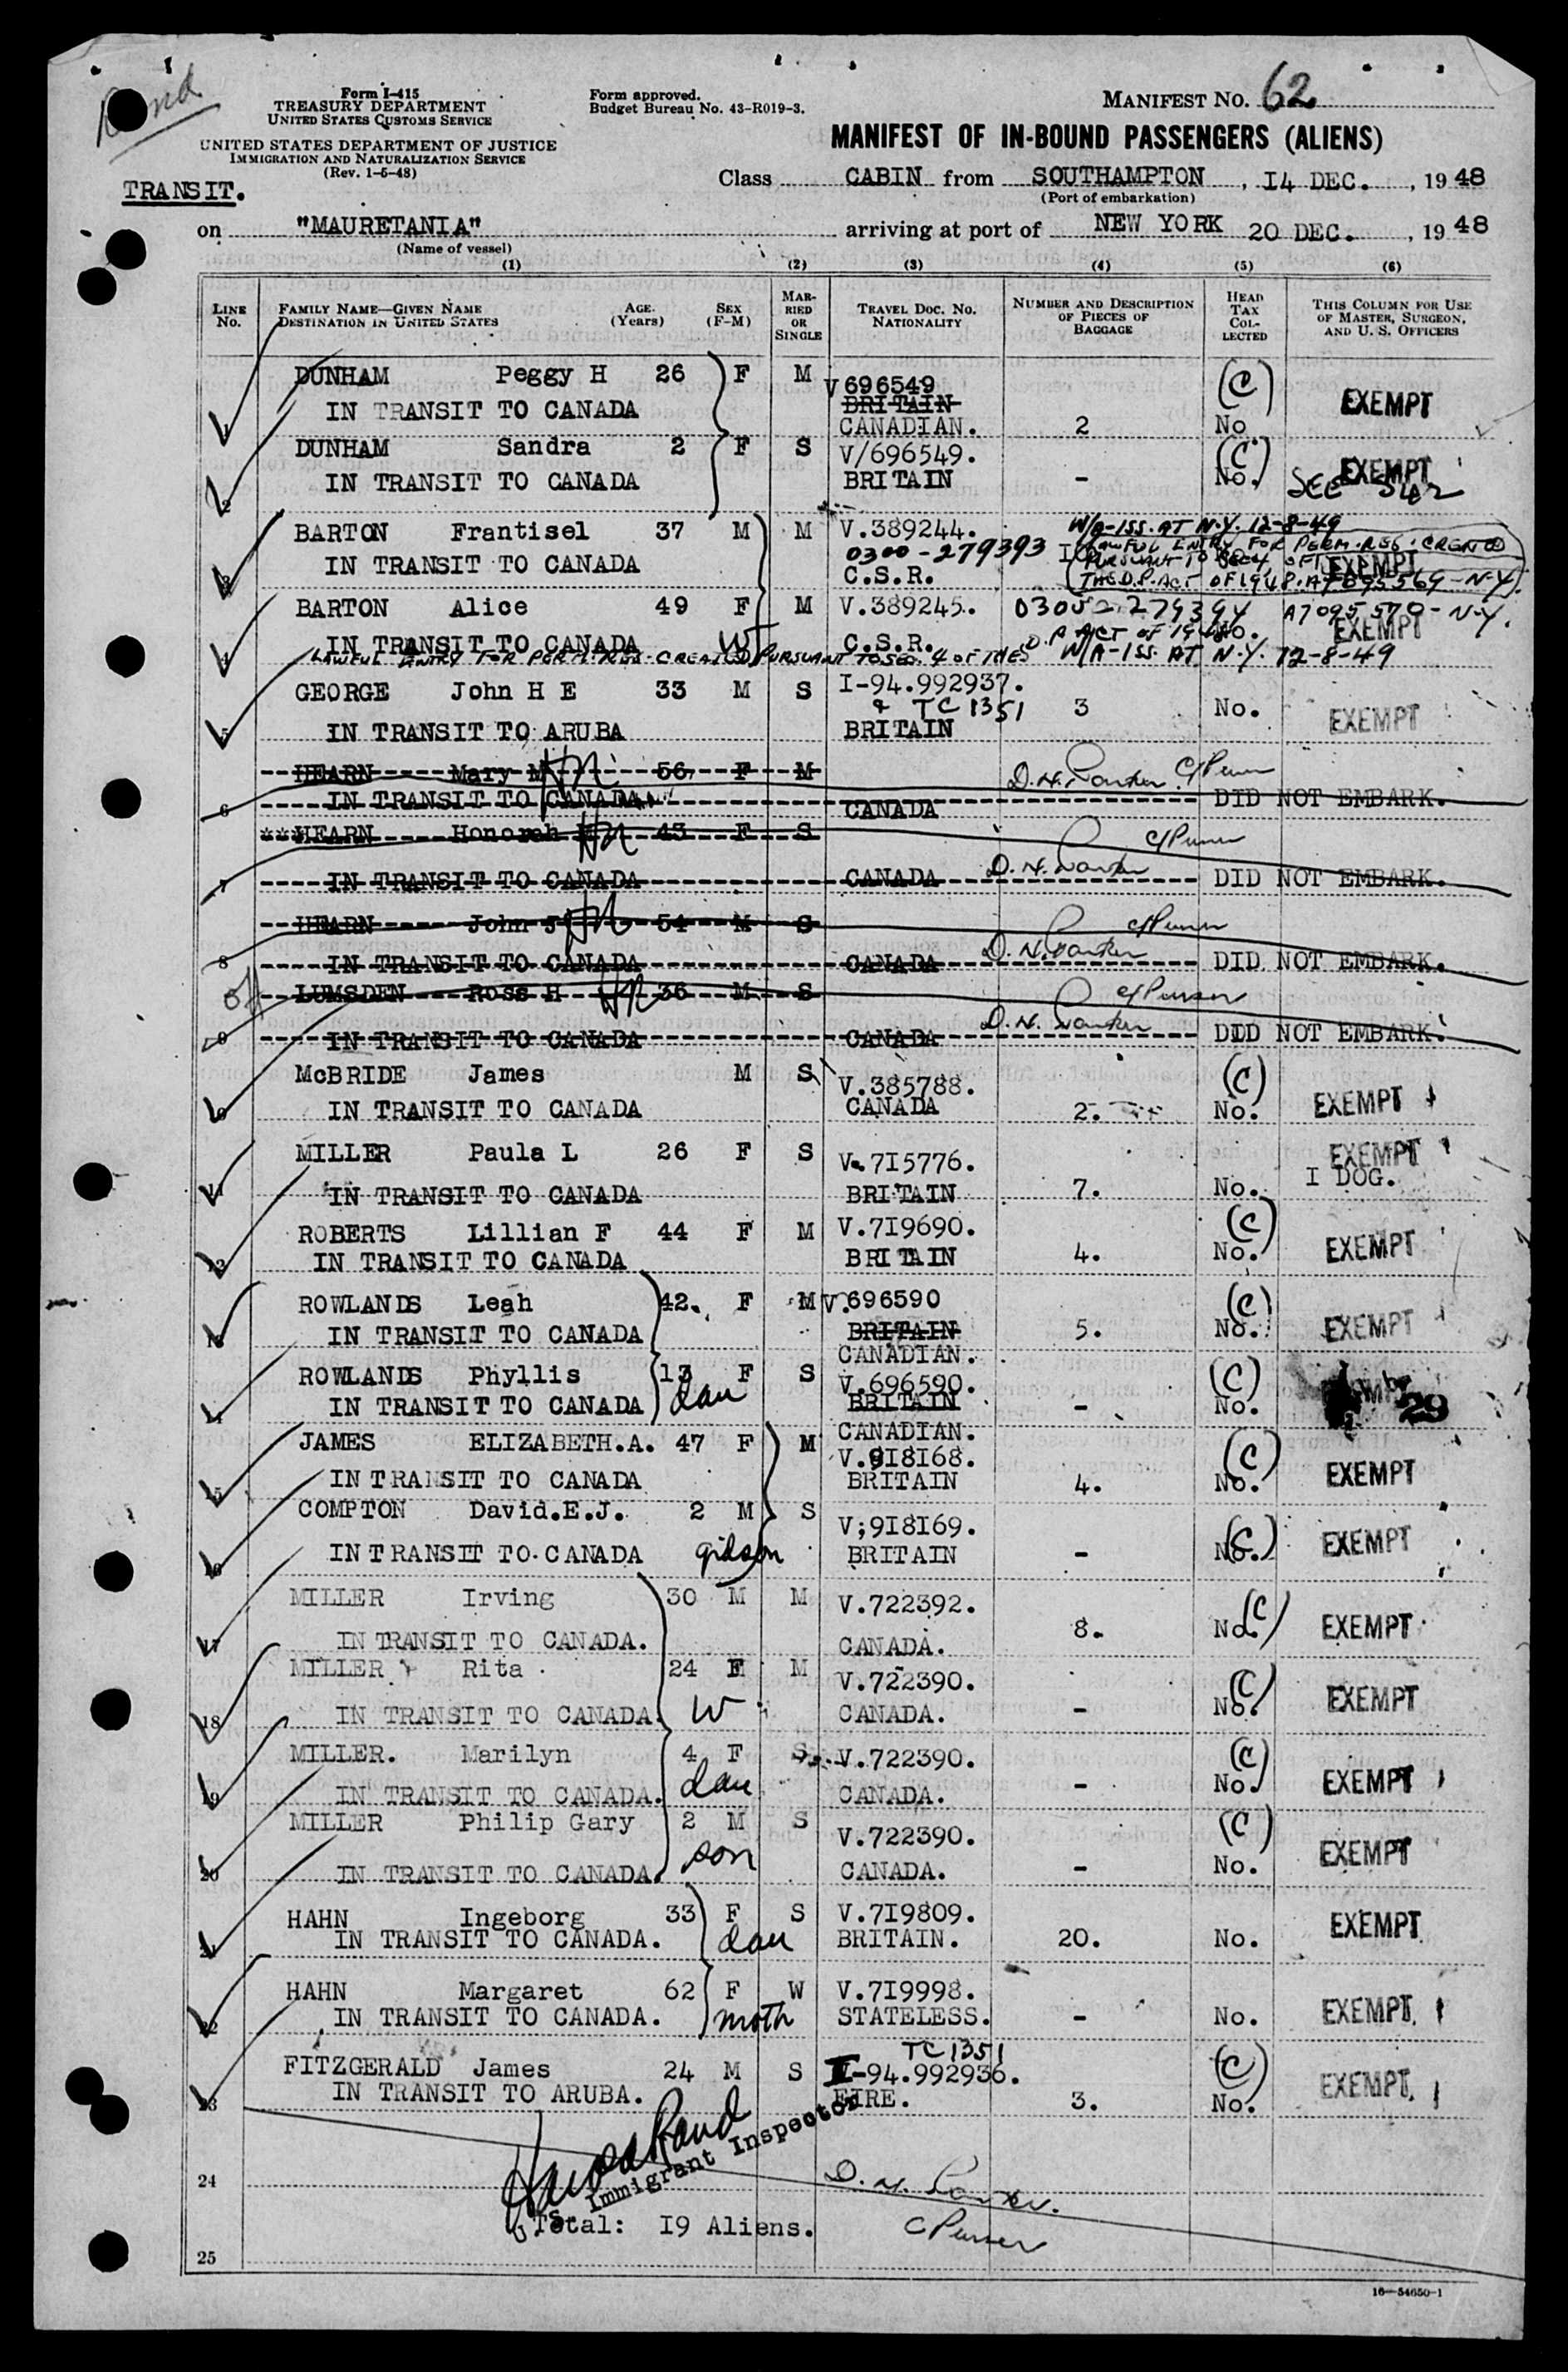 Form I-415
TREASURY DEPARTMENT
UNITED STATES CUSTOMS SERVICE
UNITED STATES DEPARTMENT OF JUSTICE
IMMIGRATION AND NATURALIZATION SERVICE
(Rev. 1-5-48)
TRANSIT.
Form approved.
Budget Bureau No. 43-R019-3.
MANIFEST NO. 62
MANIFEST OF IN-BOUND PASSENGERS (ALIENS)
Class CABIN from SOUTHAMPTON, I4 DEC., 1948
(Port of embarkation)
on "MAURETANIA" arriving at port of NEW YORK 20 DEC., 1948
(Name of vessel)
(1) (2) (3) (4) (5) (6)
LINE No. FAMILY NAME—GIVEN NAME DESTINATION IN UNITED STATES AGE (Years) SEX (F-M) MARRIED OR SINGLE TRAVEL DOC. NO. NATIONALITY NUMBER AND DESCRIPTION OF PIECES OF BAGGAGE HEAD TAX COLLECTED THIS COLUMN FOR USE OF MASTER, SURGEON, AND U. S. OFFICERS
DUNHAM Peggy H 26 F M V 696549 (C) EXEMPT
BRITAIN
1 IN TRANSIT TO CANADA CANADIAN. 2 No
DUNHAM Sandra 2 F S V/696549. (C) EXEMPT
2 IN TRANSIT TO CANADA BRITAIN - No. SEE
BARTON Frantisel 37 M M V.389244. W/A-ISS. AT N.Y. 12-8-49
0300-279393 LAWFUL ENTRY FOR PERM. RES. CREATED
PURSUANT TO SEC 4 OF EXEMPT
3 IN TRANSIT TO CANADA C.S.R. THE D.P. ACT OF 1948. A7095569-N.Y.
BARTON Alice 49 F M V.389245. 0300-279394 A7095570-N.Y.
4 IN TRANSIT TO CANADA Wf C.S.R. D.P. ACT OF 1948 No. EXEMPT
LAWFUL ENTRY FOR PERM. RES. CREATED PURSUANT TO SEC. 4 OF THE W/A-ISS. AT N.Y. 12-8-49
GEORGE John H E 33 M S I-94.992937.
& TC 1351 3 No. EXEMPT
5 IN TRANSIT TO ARUBA BRITAIN
HEARN Mary M 56 F M D.N. Parker C/Purser
6 IN TRANSIT TO CANADA CANADA DID NOT EMBARK.
**HEARN Honorah 43 F S C/Purser
7 IN TRANSIT TO CANADA CANADA D.N. Parker DID NOT EMBARK.
HEARN John J 54 M S C/Purser
8 IN TRANSIT TO CANADA CANADA D.N. Parker DID NOT EMBARK.
LUMSDEN Ross H 36 M S C/Purser
9 IN TRANSIT TO CANADA CANADA D.N. Parker DID NOT EMBARK.
McBRIDE James M S V.385788. (C)
10 IN TRANSIT TO CANADA CANADA 2. No. EXEMPT
MILLER Paula L 26 F S V.7I5776. EXEMPT
11 IN TRANSIT TO CANADA BRITAIN 7. No. I DOG.
ROBERTS Lillian F 44 F M V.7I9690. (C)
12 IN TRANSIT TO CANADA BRITAIN 4. No. EXEMPT
ROWLANDS Leah 42. F M V.696590 (C)
13 IN TRANSIT TO CANADA BRITAIN 5. No. EXEMPT
CANADIAN.
ROWLANDS Phyllis 13 F S V.696590. (C)
14 IN TRANSIT TO CANADA dau BRITAIN - No. 29
CANADIAN.
JAMES ELIZABETH.A. 47 F M V.9I8I68. (C)
15 IN TRANSIT TO CANADA BRITAIN 4. No. EXEMPT
COMPTON David.E.J. 2 M S V;9I8I69. (C)
16 IN TRANSIT TO CANADA gdson BRITAIN - No. EXEMPT
MILLER Irving 30 M M V.722392. (C)
17 IN TRANSIT TO CANADA. CANADA. 8. No. EXEMPT
MILLER Rita 24 F M V.722390. (C)
18 IN TRANSIT TO CANADA. W CANADA. - No. EXEMPT
MILLER. Marilyn 4 F S V.722390. (C)
19 IN TRANSIT TO CANADA. dau CANADA. - No. EXEMPT
MILLER Philip Gary 2 M S V.722390. (C)
20 IN TRANSIT TO CANADA. son CANADA. - No. EXEMPT
HAHN Ingeborg 33 F S V.7I9809. EXEMPT
21 IN TRANSIT TO CANADA. dau BRITAIN. 20. No.
HAHN Margaret 62 F W V.7I9998.
22 IN TRANSIT TO CANADA. moth STATELESS. - No. EXEMPT.
TC 1351
FITZGERALD James 24 M S I-94.992936. (C) EXEMPT.
23 IN TRANSIT TO ARUBA. EIRE. 3. No.
U.S. Immigrant Inspector
24 D. N. Parker.
Total: I9 Aliens. C Purser
25
16—54650-1